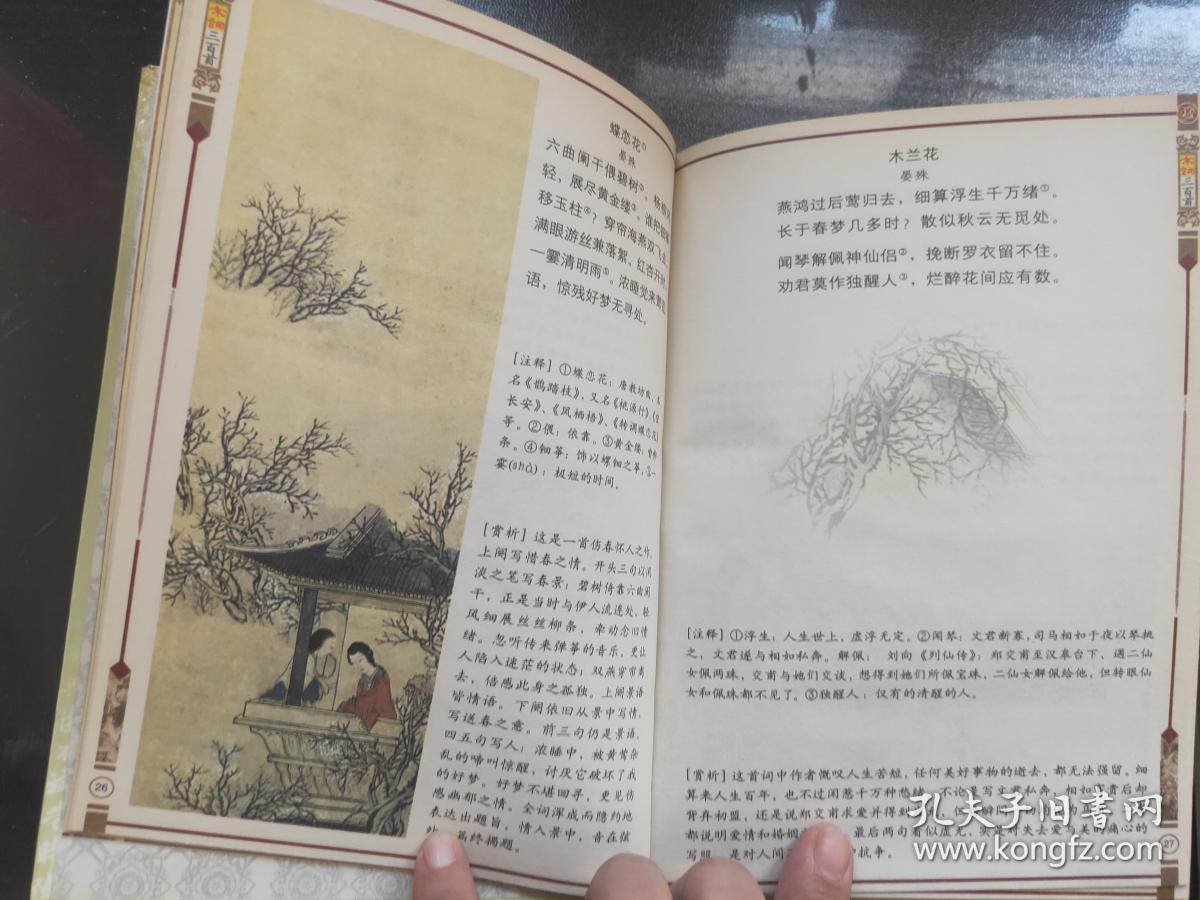 宋词三百首
蝶恋花①
晏殊
六曲阑干偎碧树②，杨柳风
轻，展尽黄金缕③。谁把钿筝
移玉柱④？穿帘海燕双飞去。
满眼游丝兼落絮，红杏开时，
一霎清明雨⑤。浓睡觉来莺乱
语，惊残好梦无寻处。
[注释]①蝶恋花：唐教坊曲，本
名《鹊踏枝》，又名《桃源行》、
长安》、《凤栖梧》、《转调蝶恋花》
等。②偎：依靠。③黄金缕：
条。④钿筝：饰以螺钿之筝。⑤一
霎(shà)：极短的时间。
[赏析]这是一首伤春怀人之作，
上阙写惜春之情。开头三句以闲
淡之笔写春景：碧树倚靠六曲阑
干，正是当时与伊人流连处，轻
风细展丝丝柳条，牵动念旧情
绪。忽听传来弹筝的音乐，更让
人陷入迷茫的状态；双燕穿帘离
去，倍感此身之孤独。上阙景语
皆情语。下阙依旧从景中写情，
写送春之意。前三句仍是景语，
四五句写人：浓睡中，被黄莺杂
乱的啼叫惊醒，讨厌它破坏了我
的好梦。好梦不堪回寻，更见伤
感幽郁之情。全词浑成而隐约地
表达出题旨，情入景中，音在弦
篇终揭题。
26
木兰花
晏殊
燕鸿过后莺归去，细算浮生千万绪①。
长于春梦几多时？散似秋云无觅处。
闻琴解佩神仙侣②，挽断罗衣留不住。
劝君莫作独醒人③，烂醉花间应有数。
[注释]①浮生：人生世上，虚浮无定。②闻琴：文君新寡，司马相如于夜以琴挑
之，文君遂与相如私奔。解佩： 刘向《列仙传》：郑交甫至汉皋台下，遇二仙
女佩两珠，交甫与她们交谈，想得到她们所佩宝珠，二仙女解佩给他，但转眼仙
女和佩珠都不见了。③独醒人：仅有的清醒的人。
[赏析]这首词中作者慨叹人生苦短，任何美好事物的逝去，都无法强留。细
算来人生百年，也不过闲愁千万种愁绪。不论是写文君私奔，相如了贵后却
背弃初盟，还是说郑交甫求爱并得到
都说明爱情和婚姻 最后两句看似虚无，实是对失去爱与美的痛心的
写照，是对人间 抗争。
27
宋词三百首
孔夫子旧书网
www.kongfz.com